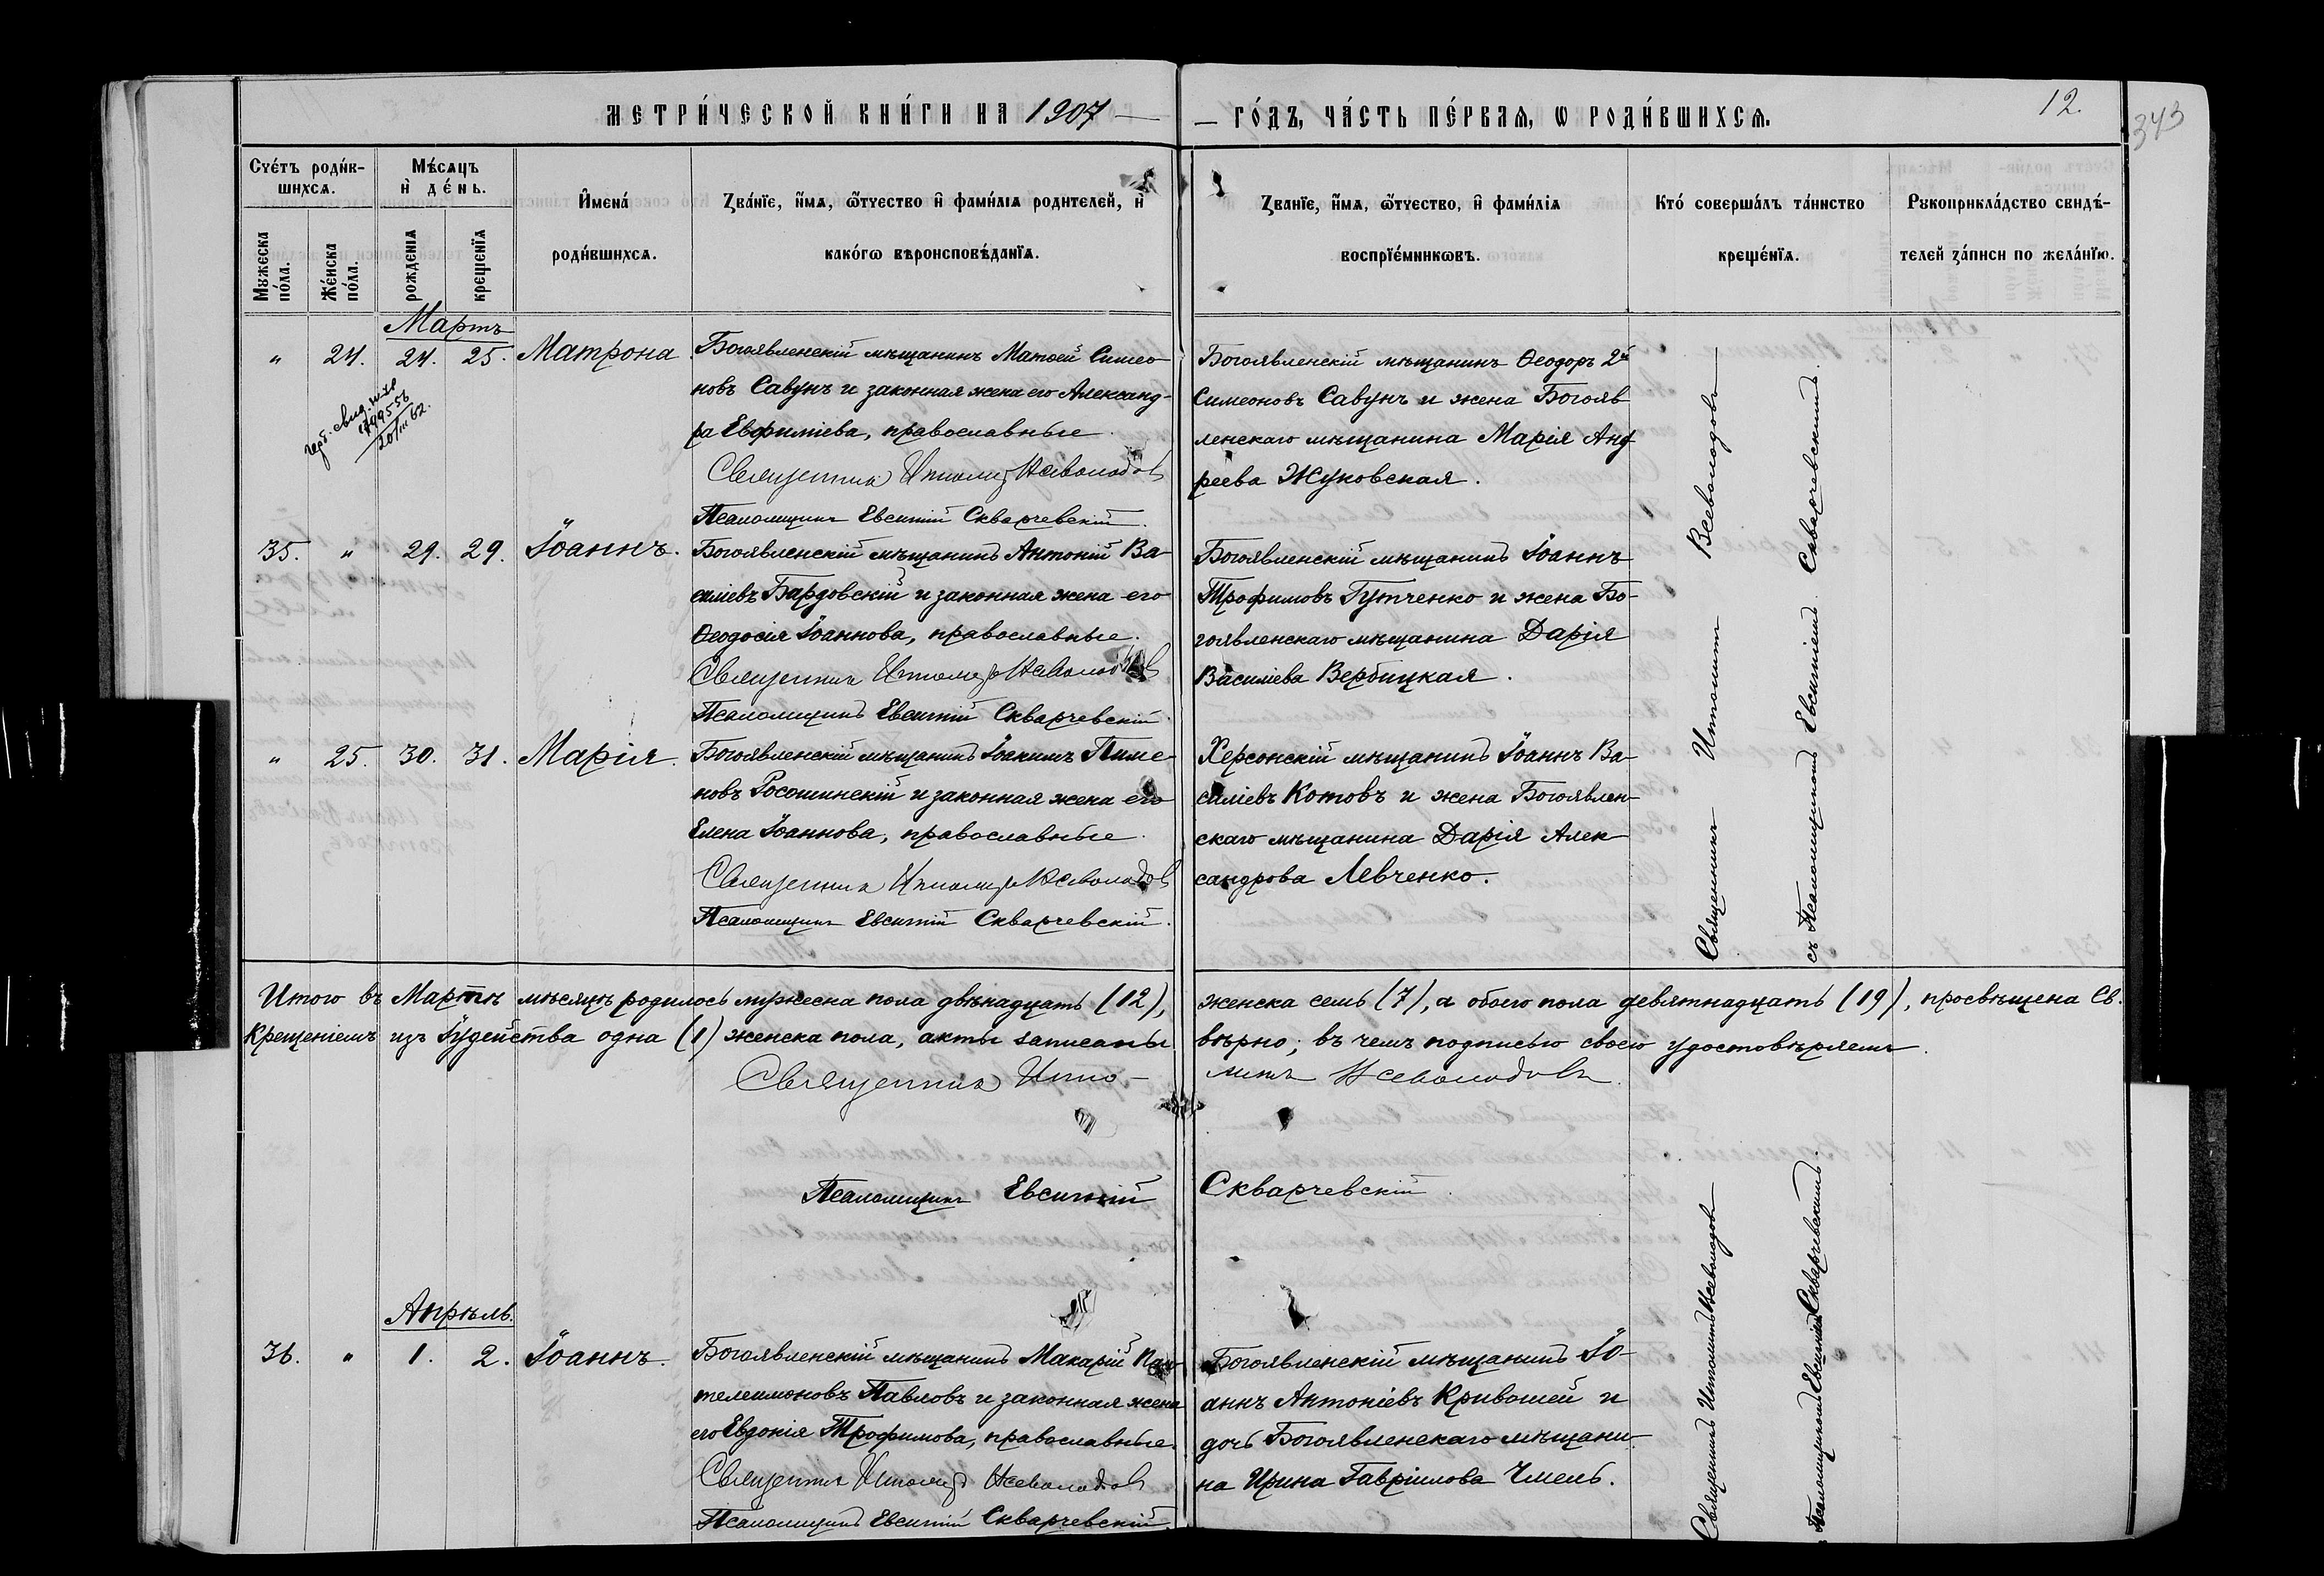 МЕТРИ́ЧЕСКОЙ КНИ́ГИ НА 1907 — — ГО́ДЪ, ЧА́СТЬ ПЕ́РВАѦ, Ѡ РОДИ́ВШИХСѦ.
12.
343
Сче́тъ роди́в-
шихсѧ.
Мѣ́сѧцъ
и҆ де́нь.
И҆мена́
роди́вшихсѧ.
Зва́нїе, и҆́мѧ, ѻ҆́тчество и҆ фами́лїѧ родителей, и҆
како́гѡ вѣроисповѣ́данїѧ.
Зва́нїе, и҆́мѧ, ѻ҆́тчество, и҆ фами́лїѧ
воспрїе́мникѡвъ.
Кто́ соверша́лъ та́инство
креще́нїѧ.
Рꙋкоприкла́дство свидѣ́-
телей за́писи по жела́нїю.
Мꙋжеска
по́ла.
Же́нска
по́ла.
рожденїѧ
крещенїѧ
Мартъ
" 24. 24. 25. Матрона
Богоявленскій мѣщанинъ Матѳей Симео-
новъ Савунъ и законная жена его Александ-
ра Евфиміева, православные.
Священникъ Ипполитъ Всеволодовъ
Псаломщикъ Евсигній Скварчевскій.
Богоявленскій мѣщанинъ Ѳеодоръ 2й
Симеоновъ Савунъ и жена Богояв
ленскаго мѣщанина Марія Анд
реева Жуковская.
20/III 62.
35. " 29. 29. Іоаннъ.
Богоявленскій мѣщанинъ Антоній Ва-
силіевъ Бардовскій и законная жена его
Ѳеодосія Іоаннова, православные.
Священникъ Ипполитъ Всеволодовъ
Псаломщикъ Евсигній Скварчевскій.
Богоявленскій мѣщанинъ Іоаннъ
Трофимовъ Гутченко и жена Бо-
гоявленскаго мѣщанина Дарія
Василіева Вербицкая.
" 25. 30. 31. Марія.
Богоявленскій мѣщанинъ Іоакимъ Пиме-
новъ Росошинскій и законная жена его
Елена Іоаннова, православные.
Священникъ Ипполитъ Всеволодовъ
Псаломщикъ Евсигній Скварчевскій.
Херсонскій мѣщанинъ Іоаннъ Ва-
силіевъ Котовъ и жена Богоявлен-
скаго мѣщанина Дарія Алек
сандрова Левченко.
Священникъ Ипполитъ Всеволодовъ
съ Псаломщикомъ Евсигніемъ Скварчевскимъ.
Итого въ Мартѣ мѣсяцѣ родилось мужеска пола двѣнадцать (12), женска семь (7), а обоего пола девятнадцать (19), просвѣщена Св.
Крещеніемъ изъ Іудейства одна (1) женска пола, акты записаны вѣрно; въ чемъ подписью своею удостовѣряемъ.
Священникъ Иппо- литъ Всеволодовъ.
Псаломщикъ Евсигній Скварчевскій.
Апрѣль.
36. " 1. 2. Іоаннъ.
Богоявленскій мѣщанинъ Макарій Пан-
телеимоновъ Павловъ и законная жена
его Евдокія Трофимова, православные.
Священникъ Ипполитъ Всеволодовъ
Псаломщикъ Евсигній Скварчевскій.
Богоявленскій мѣщанинъ Іо-
аннъ Антоніевъ Кривошей и
дочь Богоявленскаго мѣщани-
на Ирина Гавріилова Чмель.
Священникъ Ипполитъ Всеволодовъ
Псаломщикомъ Евсигніемъ Скварчевскимъ.